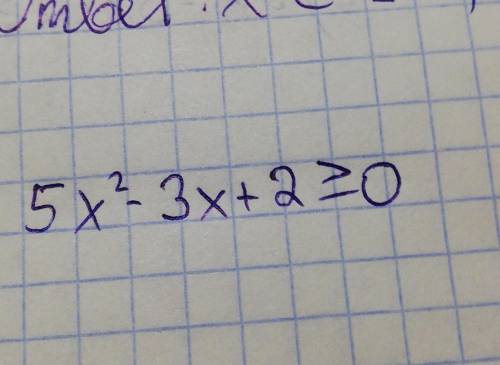 5x² - 3x + 2 ≥ 0